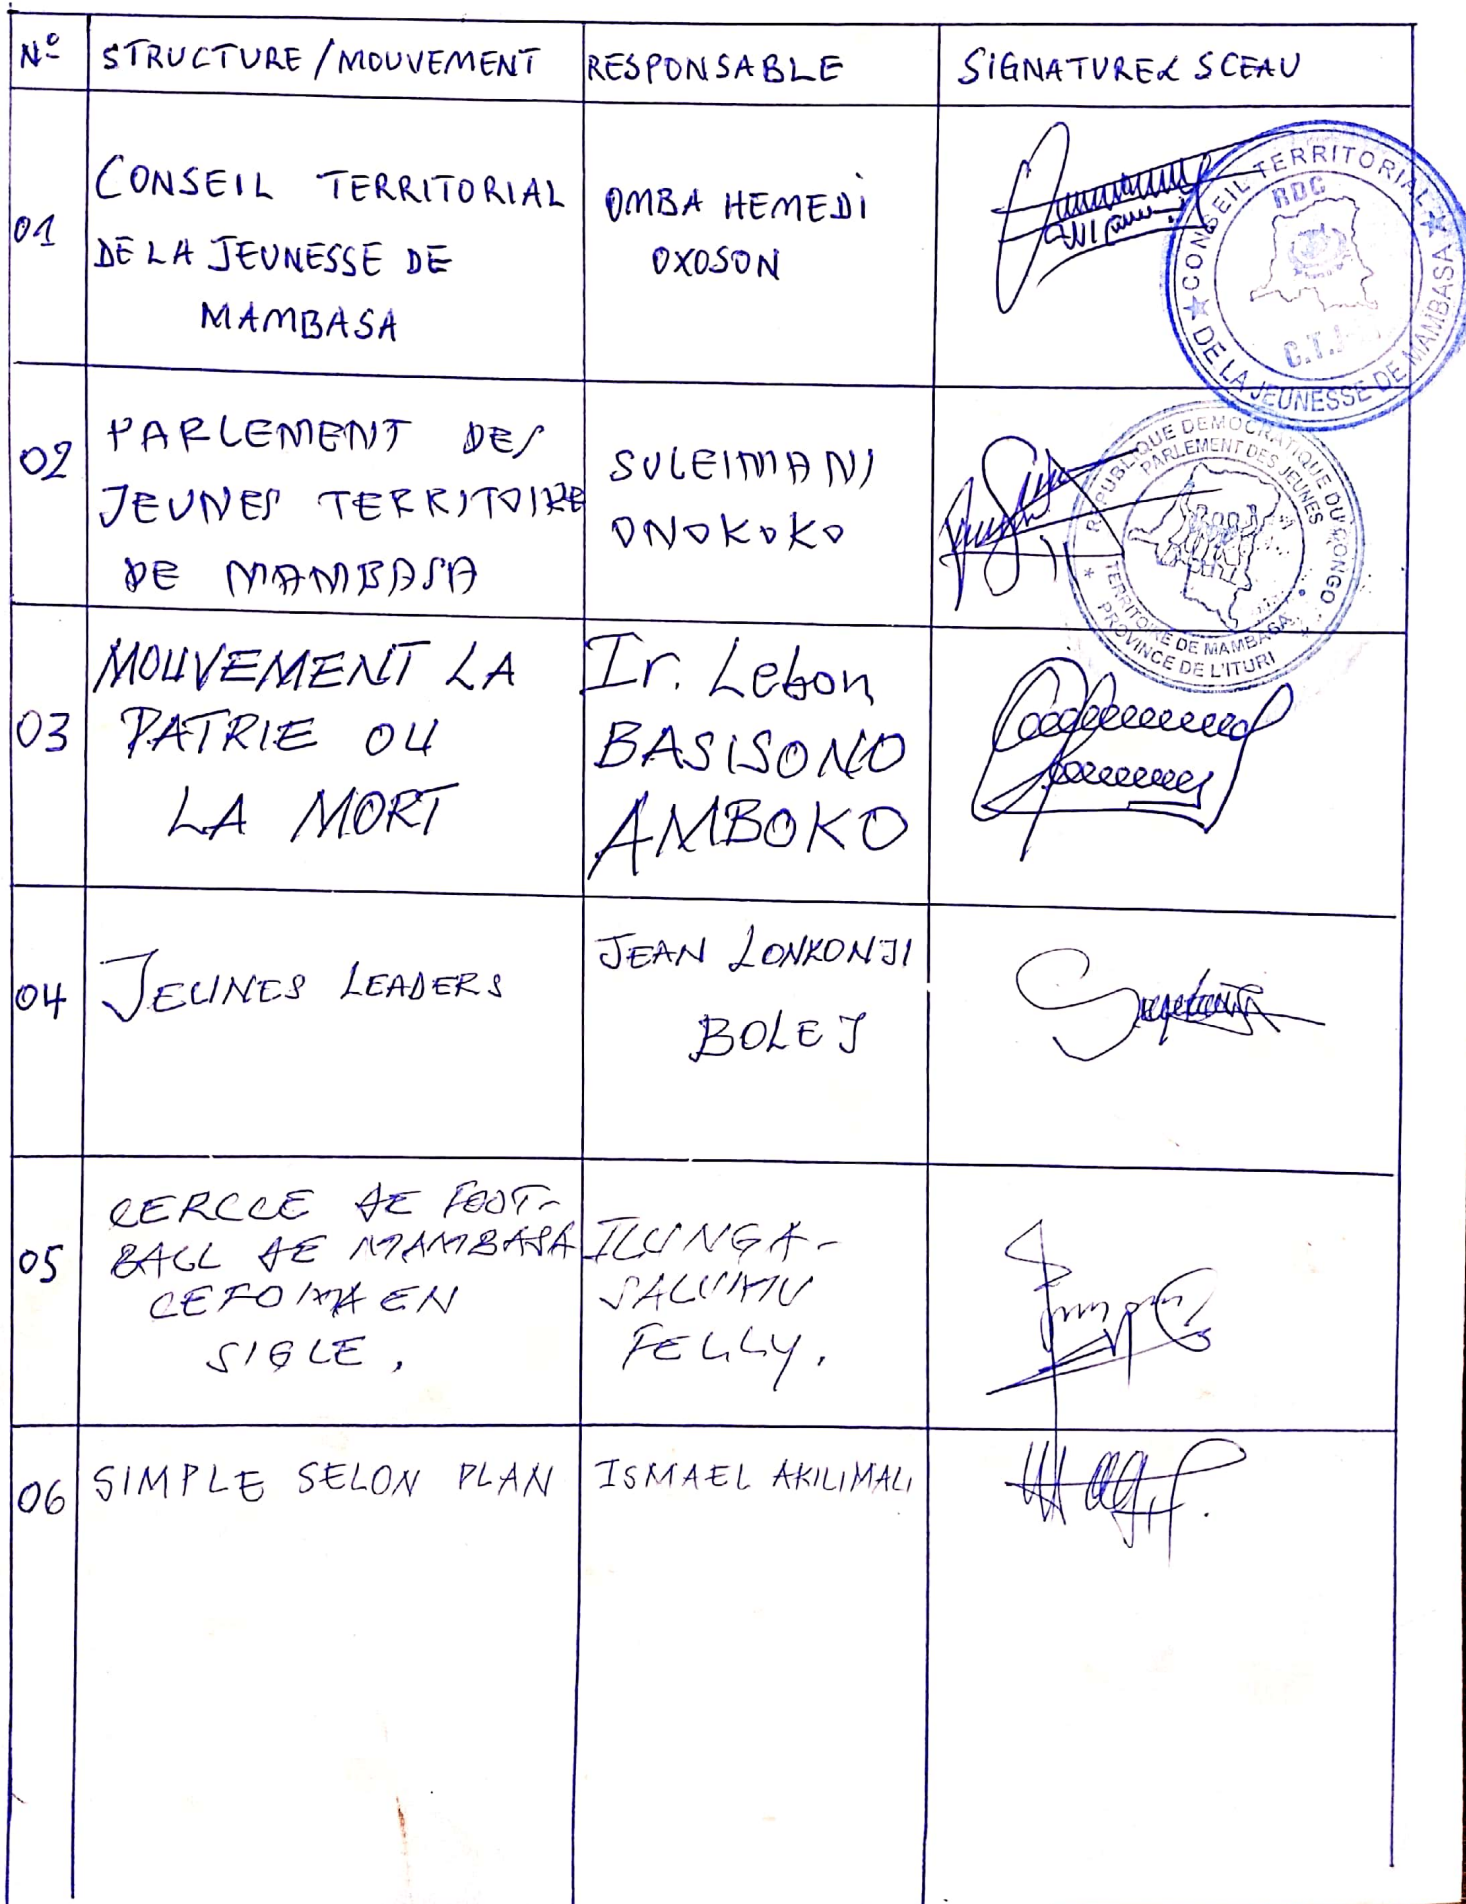 N° STRUCTURE/MOUVEMENT RESPONSABLE SIGNATURE & SCEAU
01
CONSEIL TERRITORIAL
DE LA JEUNESSE DE
MAMBASA
OMBA HEMEDI
OXOSON
CONSEIL TERRITORIAL
DE LA JEUNESSE DE MAMBASA
RDC
02
PARLEMENT DES
JEUNES TERRITOIRE
DE MAMBASA
SULEIMANI
ONOKOKO
REPUBLIQUE DEMOCRATIQUE DU CONGO
PARLEMENT DES JEUNES
TERRITOIRE DE MAMBASA
PROVINCE DE L'ITURI
03
MOUVEMENT LA
PATRIE OU
LA MORT
Ir. Lebon
BASISONO
AMBOKO
04
JEUNES LEADERS
JEAN LONKONJI
BOLEJ
05
CERCLE DE FOOT-
BALL DE MAMBASA
CEFOMA EN
SIGLE.
ILUNGA-
SALUMU
FELLY.
06
SIMPLE SELON PLAN
ISMAEL AKILIMALI